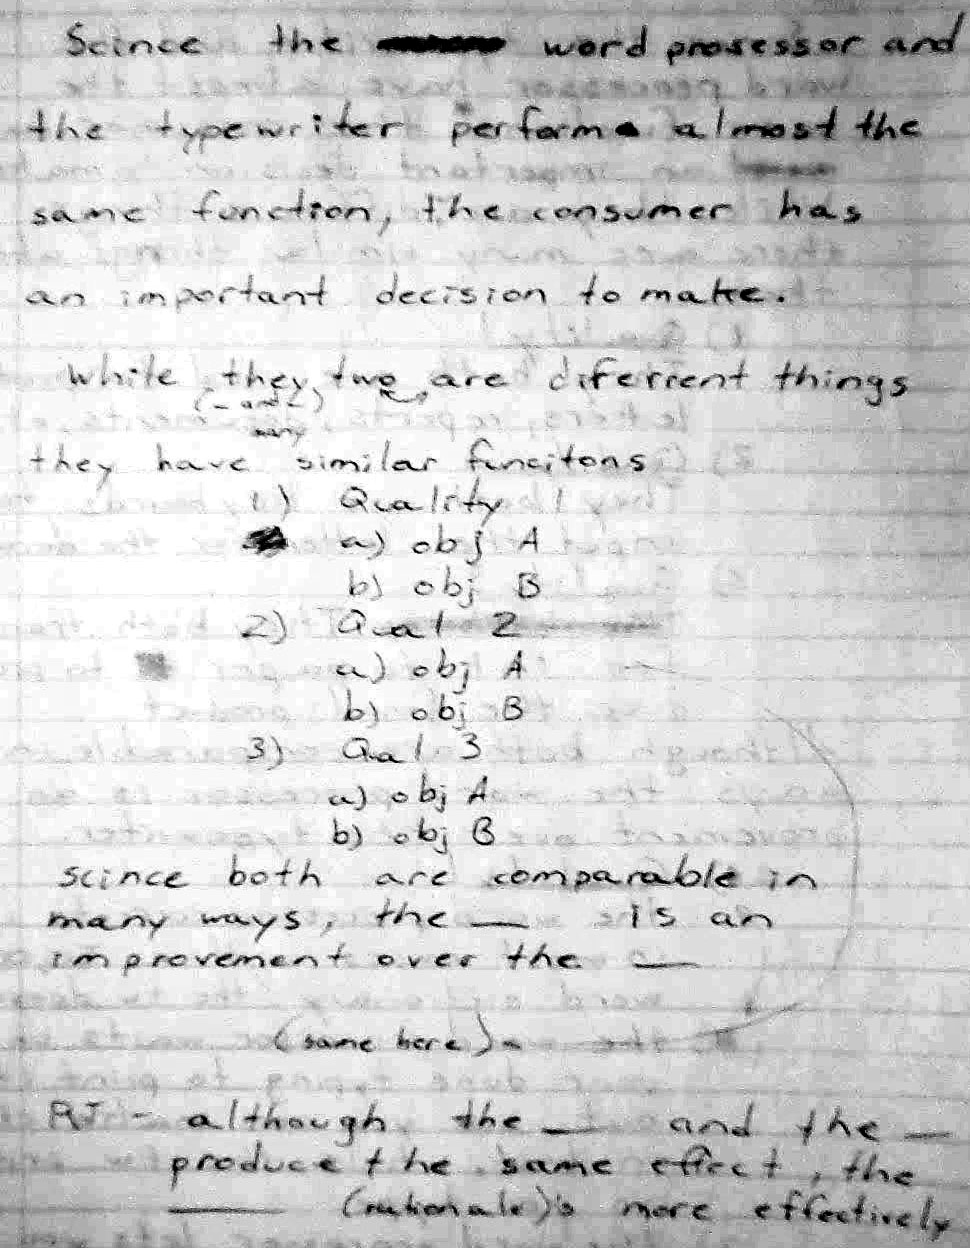 Scince the word prosessor and
the typewriter perform almost the
same function, the consumer has
an important decision to make.
While they two are diferrent things
(- and -)
many
they have similar funcitons
1) Quality 1
a) obj A
b) obj B
2) Qual 2
a) obj A
b) obj B
3) Qal 3
a) obj A
b) obj B
scince both are comparable in
many ways, the __ is an
improvement over the __
(same here)
RT - although the __ and the __
produce the same effect, the
__ (rationale)'s more effectively